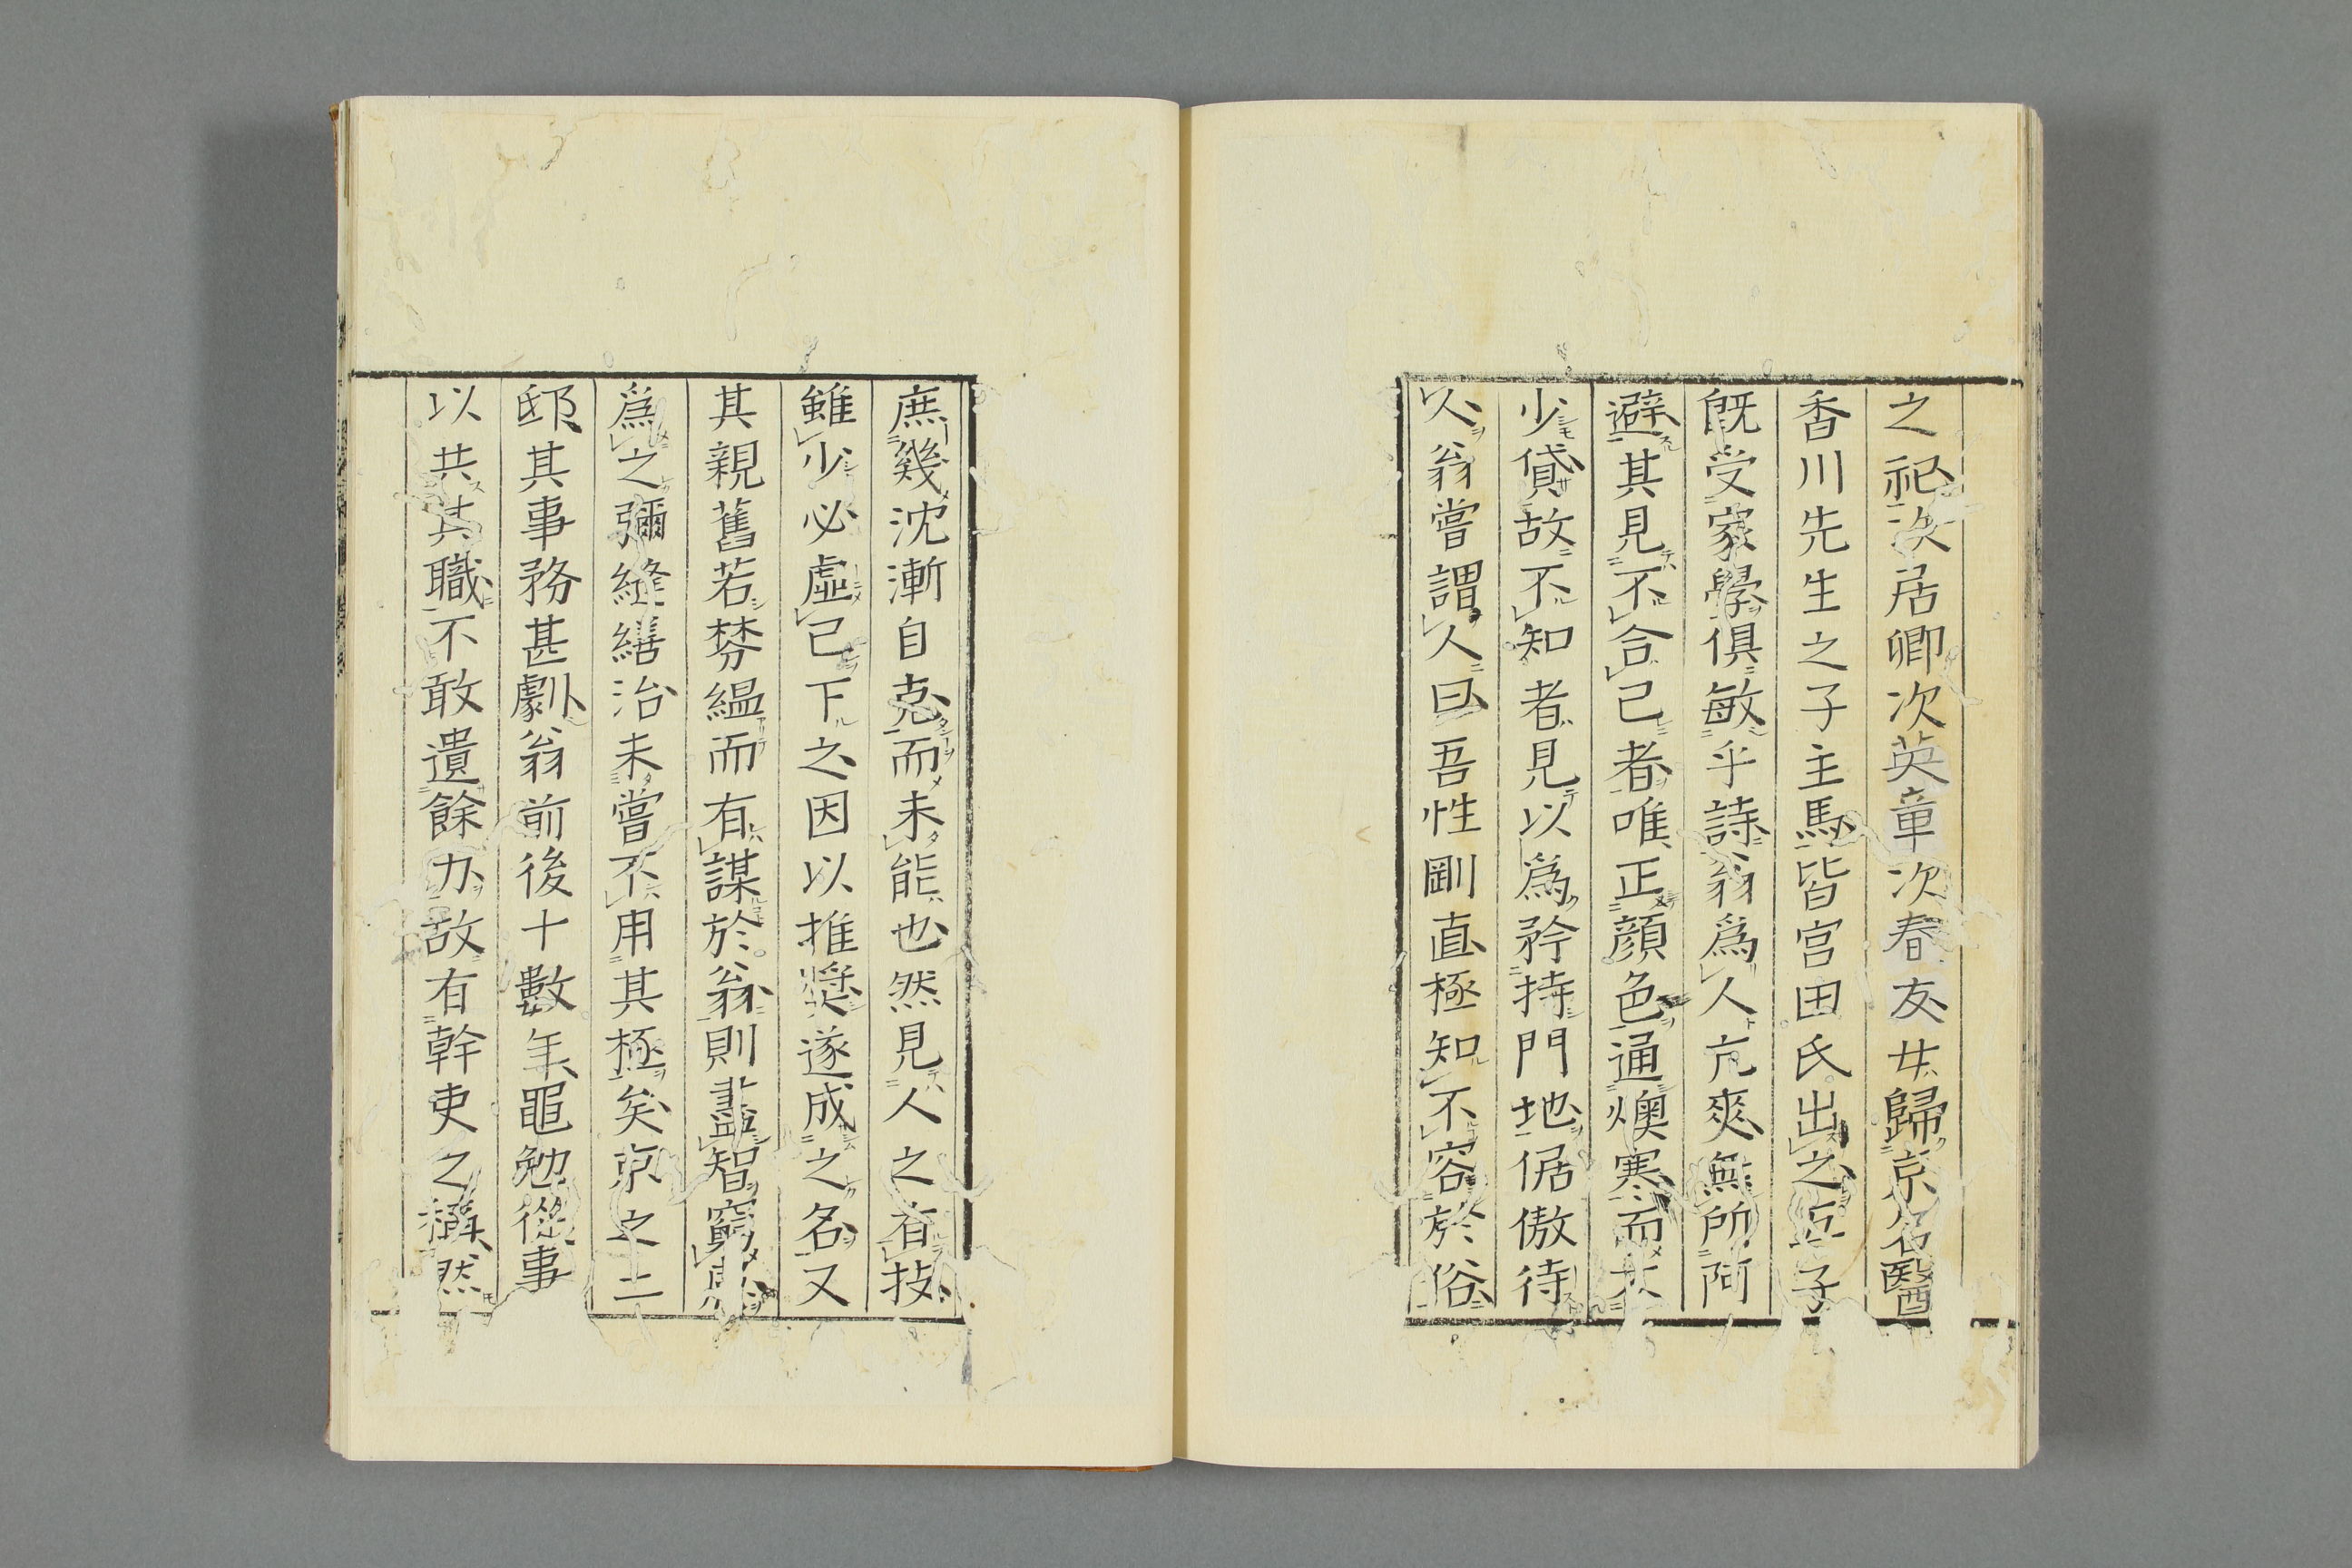 之祀次居卿次英章次春友女歸京名醫
香川先生之子主馬皆宮田氏出之五子
旣受家學俱敏乎詩翁爲人亢爽無所阿
避其見不合己者唯正顔色通燠寒而大
少貸故不知者見以爲矜持門地倨傲待
人翁嘗謂人曰吾性剛直極知不容於俗
庶幾沈漸自克而未能也然見人之有技
雖少必虛己下之因以推奬遂成之名又
其親舊若棼縕而有謀於翁則盡智窮
爲之彌縫繕治未嘗不用其極矣京之二
邸其事務甚劇翁前後十數年黽勉從事
以共其職不敢遺餘力故有幹吏之稱然